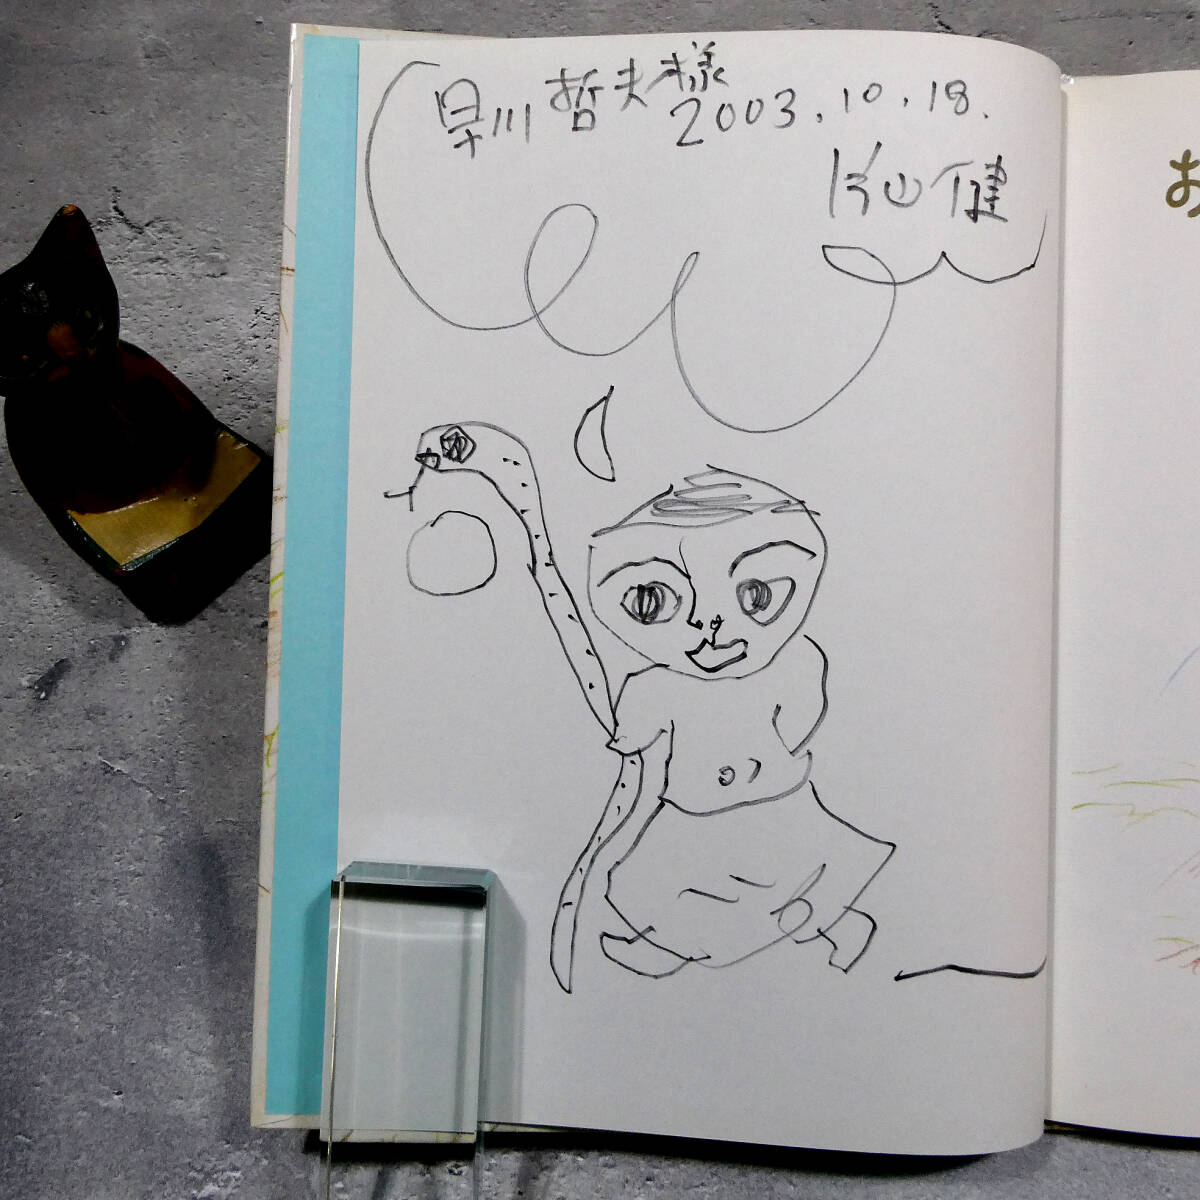 早川哲夫様
2003.10.18.
片山健
お